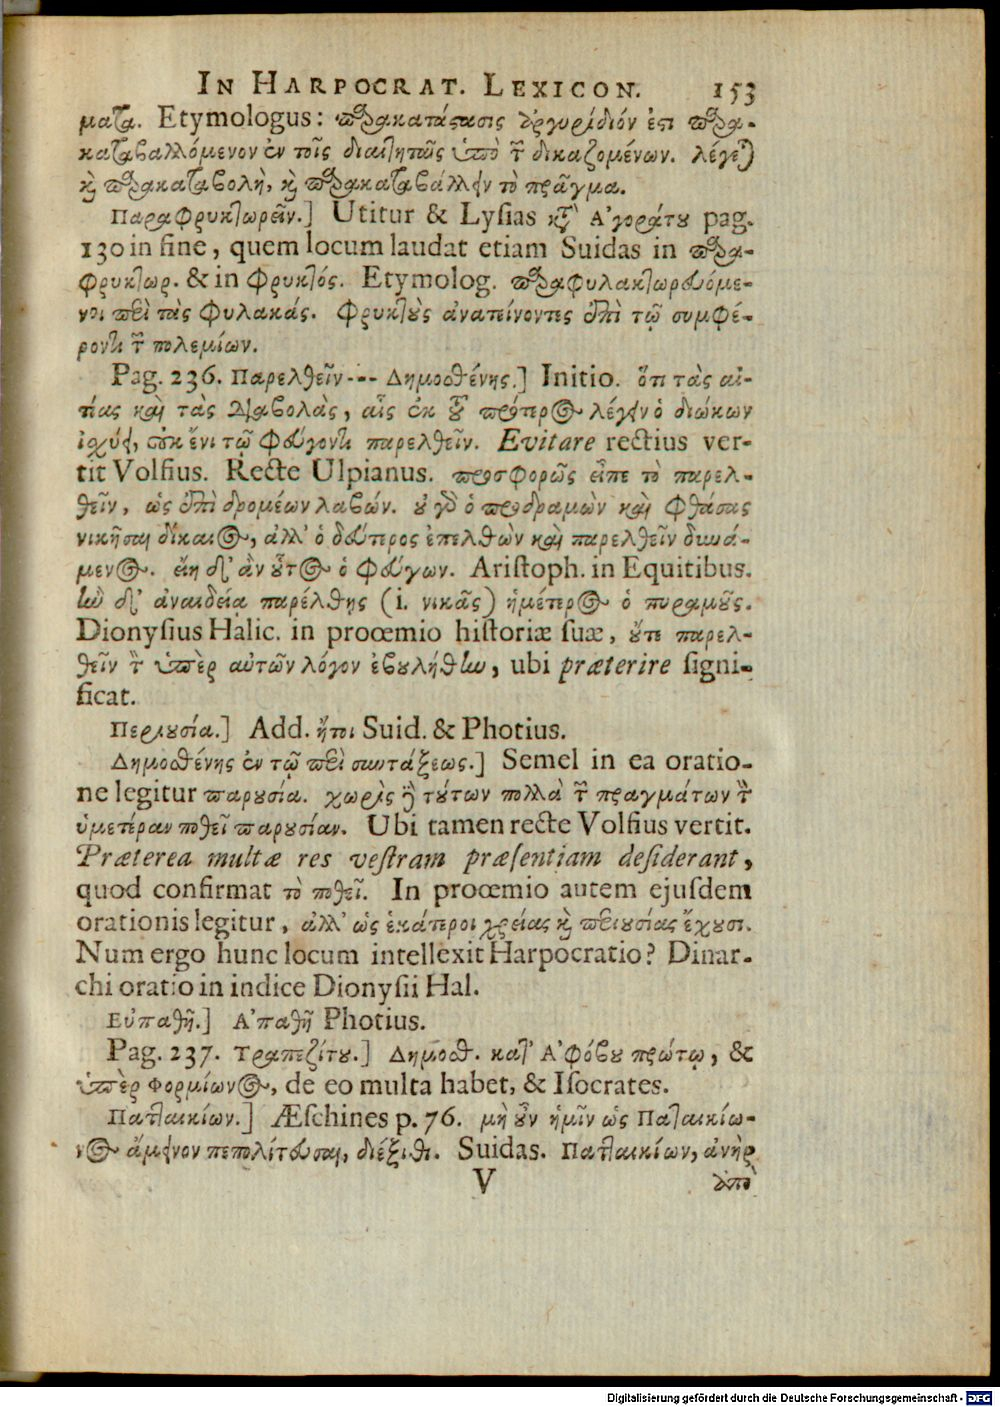 IN HARPOCRAT. LEXICON. 153
ματα. Etymologus: παρακατάστασις ἀργυρίδιόν ἐστι παρα-
καταβαλλόμενον ἐν τοῖς διαιτηταῖς ὑπὸ τῶν δικαζομένων. λέγεται
καὶ παρακαταβολὴ, καὶ παρακαταβάλλειν τὸ πρᾶγμα.
Παραφρυκτωρεῖν.] Utitur & Lysias κατ' Ἀγοράτου pag.
130 in fine, quem locum laudat etiam Suidas in παρα-
φρυκτωρ. & in φρυκτός. Etymolog. παραφυλακτωρευόμε-
νοι περὶ τὰς φυλακάς. φρυκτοὺς ἀνατείνοντες ἐπὶ τῷ συμφέ-
ροντι τῶν πολεμίων.
Pag. 236. Παρελθεῖν --- Δημοσθένης.] Initio. ὅτι τὰς αἰ-
τίας καὶ τὰς διαβολὰς, αἷς ἐκ τοῦ πρότερος λέγειν ὁ διώκων
ἰσχύει, οὐκ ἔνι τῷ φεύγοντι παρελθεῖν. Evitare rectius ver-
tit Volfius. Recte Ulpianus. προσφορῶς εἶπε τὸ παρελ-
θεῖν, ὡς ἐπὶ δρομέων λαβών. οὐ γὰρ ὁ προδραμὼν καὶ φθάσας
νικῆσαι δίκαιος, ἀλλ' ὁ δεύτερος ἐπελθὼν καὶ παρελθεῖν δυνά-
μενος. εἴη δ' ἂν οὗτος ὁ φεύγων. Aristoph. in Equitibus.
ἢν δ' ἀναιδείᾳ παρέλθης (i. νικᾷς) ἡμέτερος ὁ πυραμοῦς.
Dionysius Halic. in proœmio historiæ suæ, οὔτε παρελ-
θεῖν τὸν ὑπὲρ αὐτῶν λόγον ἐβουλήθην, ubi præterire signi-
ficat.
Περιουσία.] Add. ἤτοι Suid. & Photius.
Δημοσθένης ἐν τῷ περὶ συντάξεως.] Semel in ea oratio-
ne legitur παρουσία. χωρὶς δὲ τούτων πολλὰ τῶν πραγμάτων τὴν
ὑμετέραν ποθεῖ παρουσίαν. Ubi tamen recte Volfius vertit.
Præterea multæ res vestram præsentiam desiderant,
quod confirmat τὸ ποθεῖ. In proœmio autem ejusdem
orationis legitur, ἀλλ' ὡς ἑκάτεροι χρείας καὶ περιουσίας ἔχουσι.
Num ergo hunc locum intellexit Harpocratio? Dinar-
chi oratio in indice Dionysii Hal.
Εὐπαθῆ.] Ἀπαθῆ Photius.
Pag. 237. Τραπεζίτου.] Δημοσθ. κατ' Ἀφόβου πρώτῳ, &
ὑπὲρ Φορμίωνος, de eo multa habet, & Isocrates.
Παταικίων.] Æschines p. 76. μὴ οὖν ἡμῖν ὡς Παταικίω-
νος ἄμεινον πεπολίτευσαι, διέξιθι. Suidas. Παταικίων, ἀνὴρ
V ἀπὸ
Digitalisierung gefördert durch die Deutsche Forschungsgemeinschaft - DFG